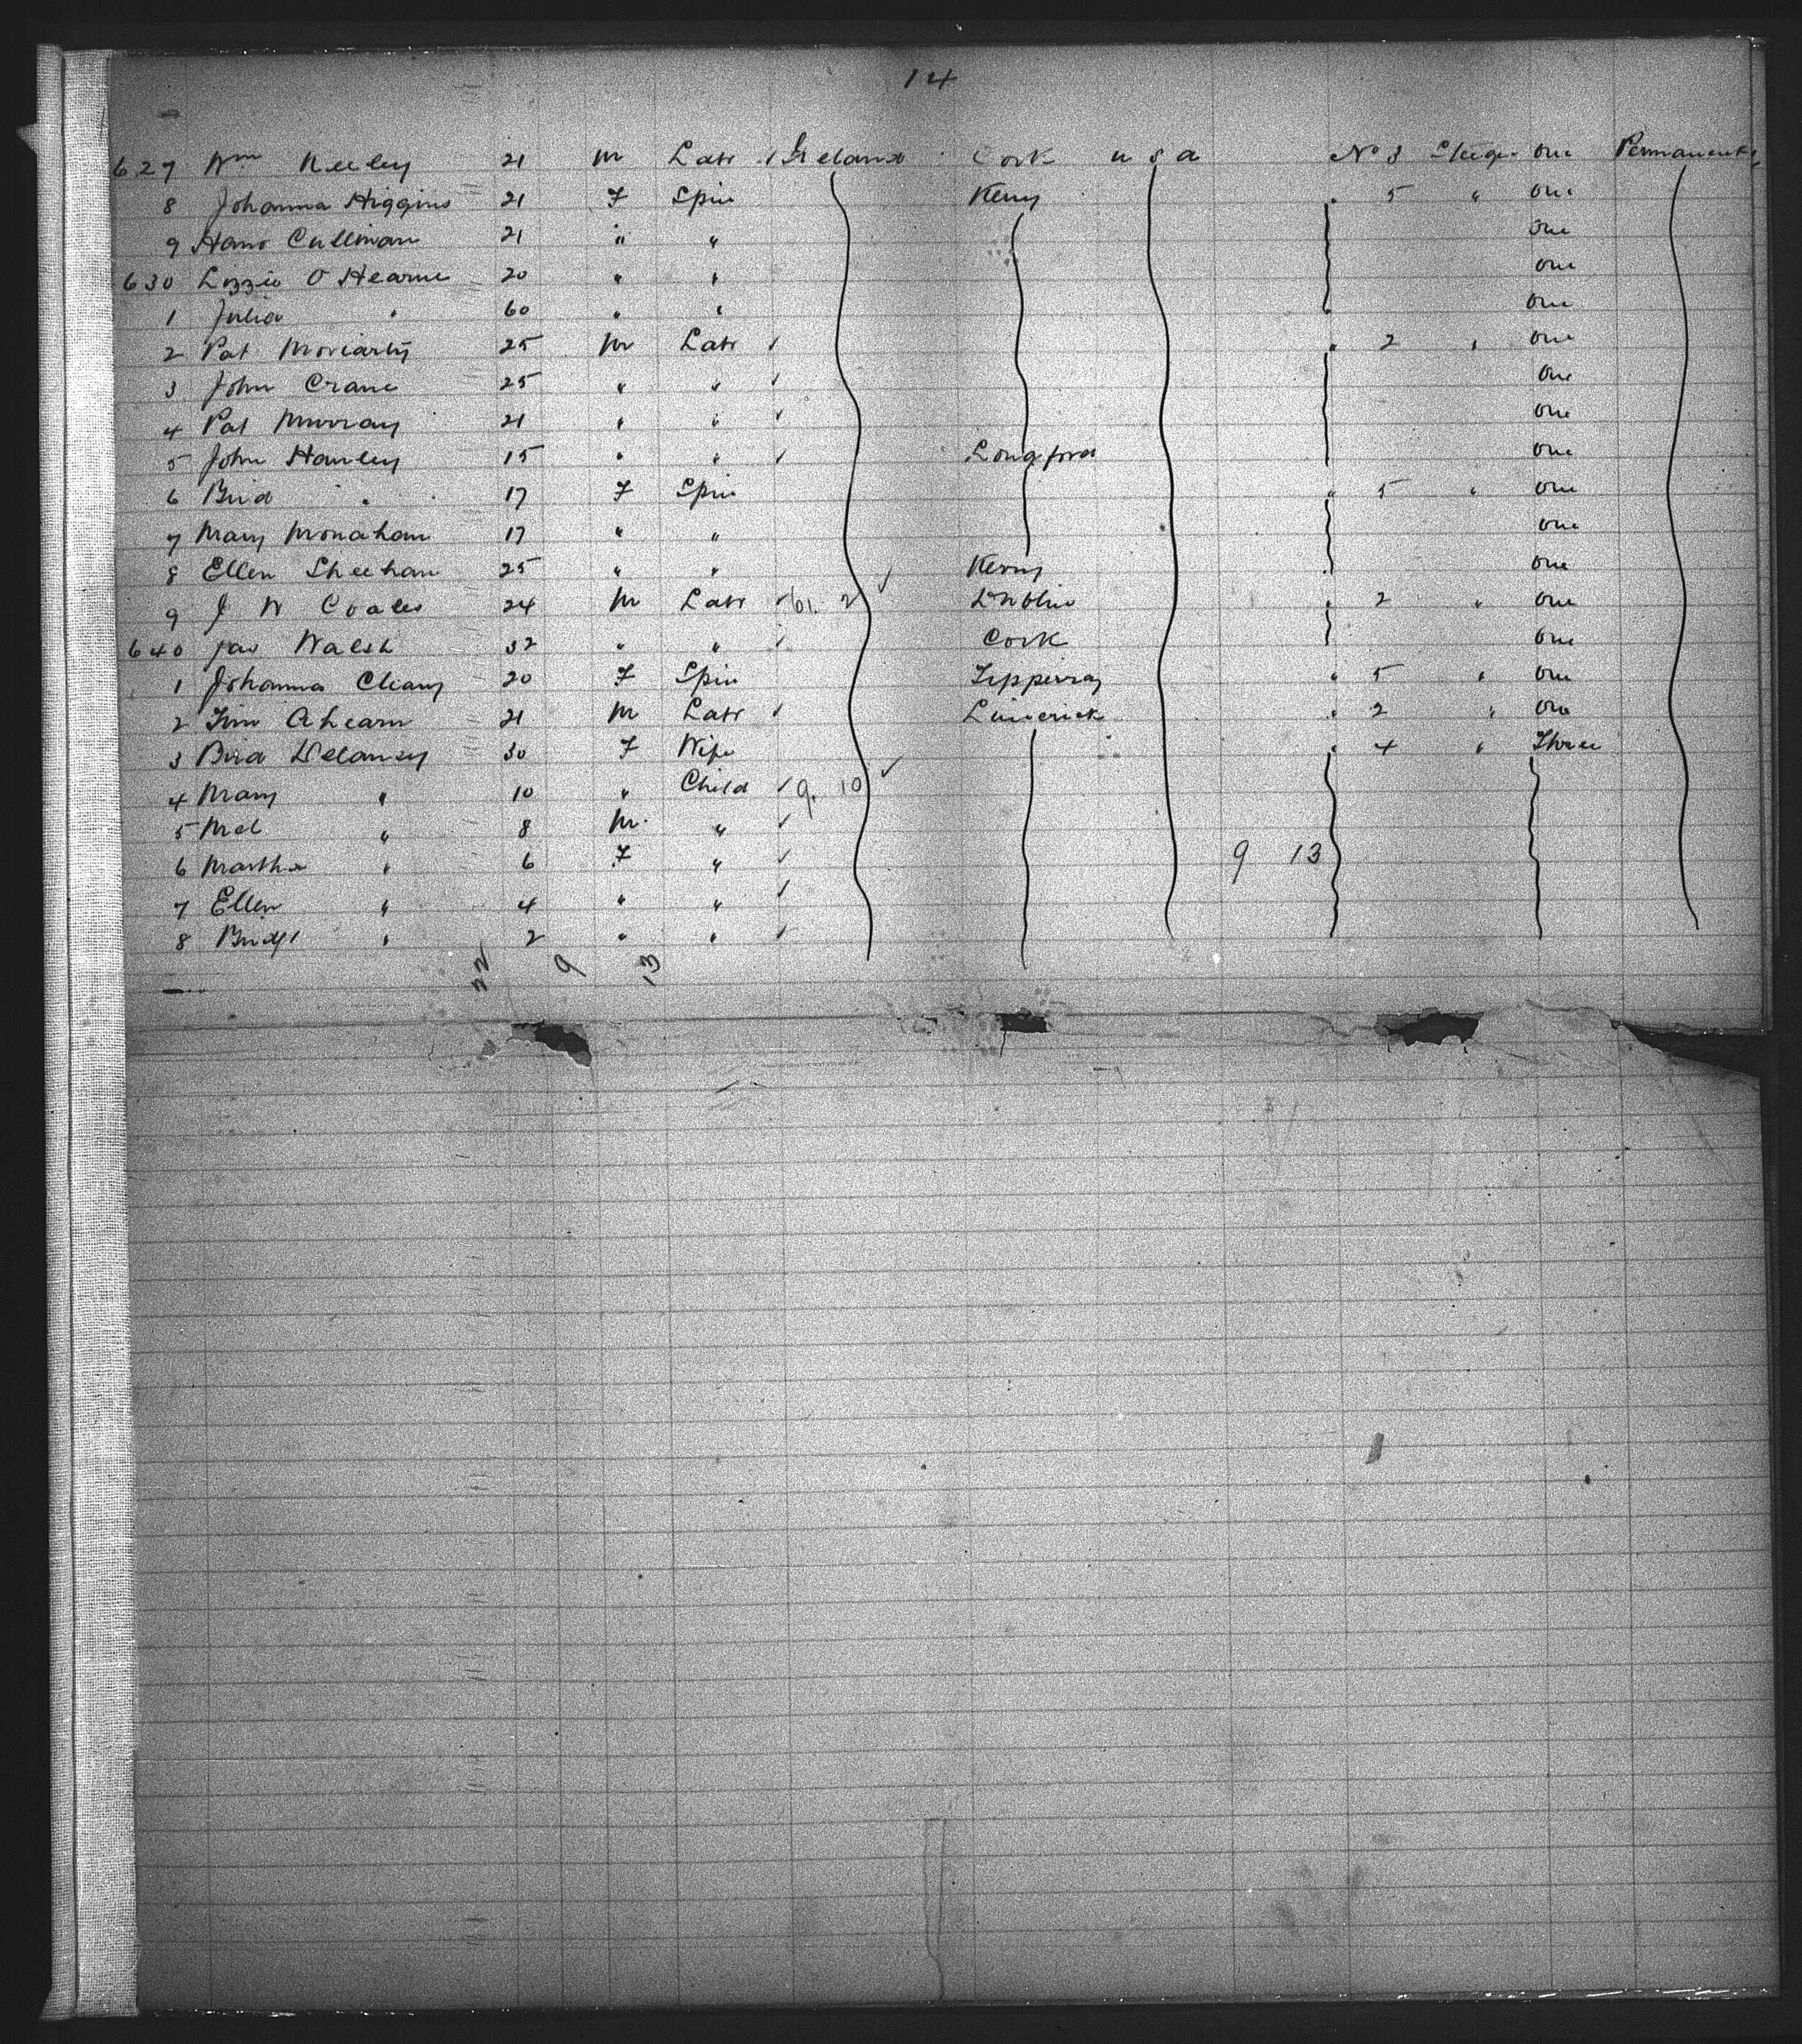 14
627 Wm Neeley 21 M Labr ✓ Ireland Cork U S A No 3 Steege One Permanently
8 Johanna Higgins 21 F Spin Kerry " 5 " One
9 Hano Cullinan 21 " " One
630 Lizzie O Hearne 20 " " One
1 Julia " 60 " " One
2 Pat Moriarty 25 M Labr ✓ " 2 " One
3 John Crane 25 " " ✓ One
4 Pat Murray 21 " " ✓ One
5 John Hanley 15 " " ✓ Longford One
6 Brid " 17 F Spin " 5 " One
7 Mary Monahan 17 " " One
8 Ellen Sheehan 25 " " Kerry One
9 J W Coates 24 M Labr ✓ 61. 2 ✓ Dublin " 2 " One
640 Jas Walsh 32 " " ✓ Cork One
1 Johanna Cleary 20 F Spin Tipperray " 5 " One
2 Tim Ahearn 21 M Labr ✓ Limerick " 2 " One
3 Brid Delaney 30 F Wife " 4 " Three
4 Mary " 10 " Child ✓ 9. 10 ✓
5 Mcl " 8 M " ✓
6 Martha " 6 F " ✓ 9 13
7 Ellen " 4 " " ✓
8 Bridgt " 2 " " ✓
22 9 13